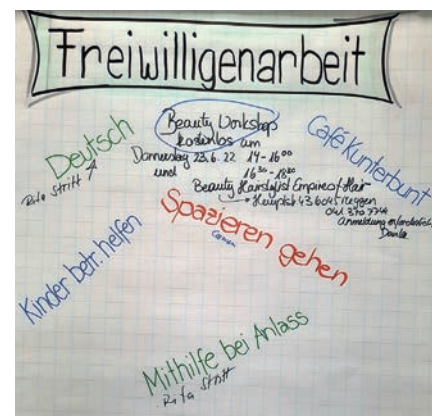 Freiwilligenarbeit
Beauty Workshop
kostenlos am
Donnerstag 23.6.22 14-16⁰⁰
und 16³⁰-18³⁰
Beauty Hairstylist Empire of Hair
Hauptstr 43 6045 Meggen
041 370 7744
Anmeldung erforderlich
Danke
Deutsch
Rita Stritt
Café Kunterbunt
Spazieren gehen
Carmen
Kinder betr. helfen
Mithilfe bei Anlass
Rita Stritt